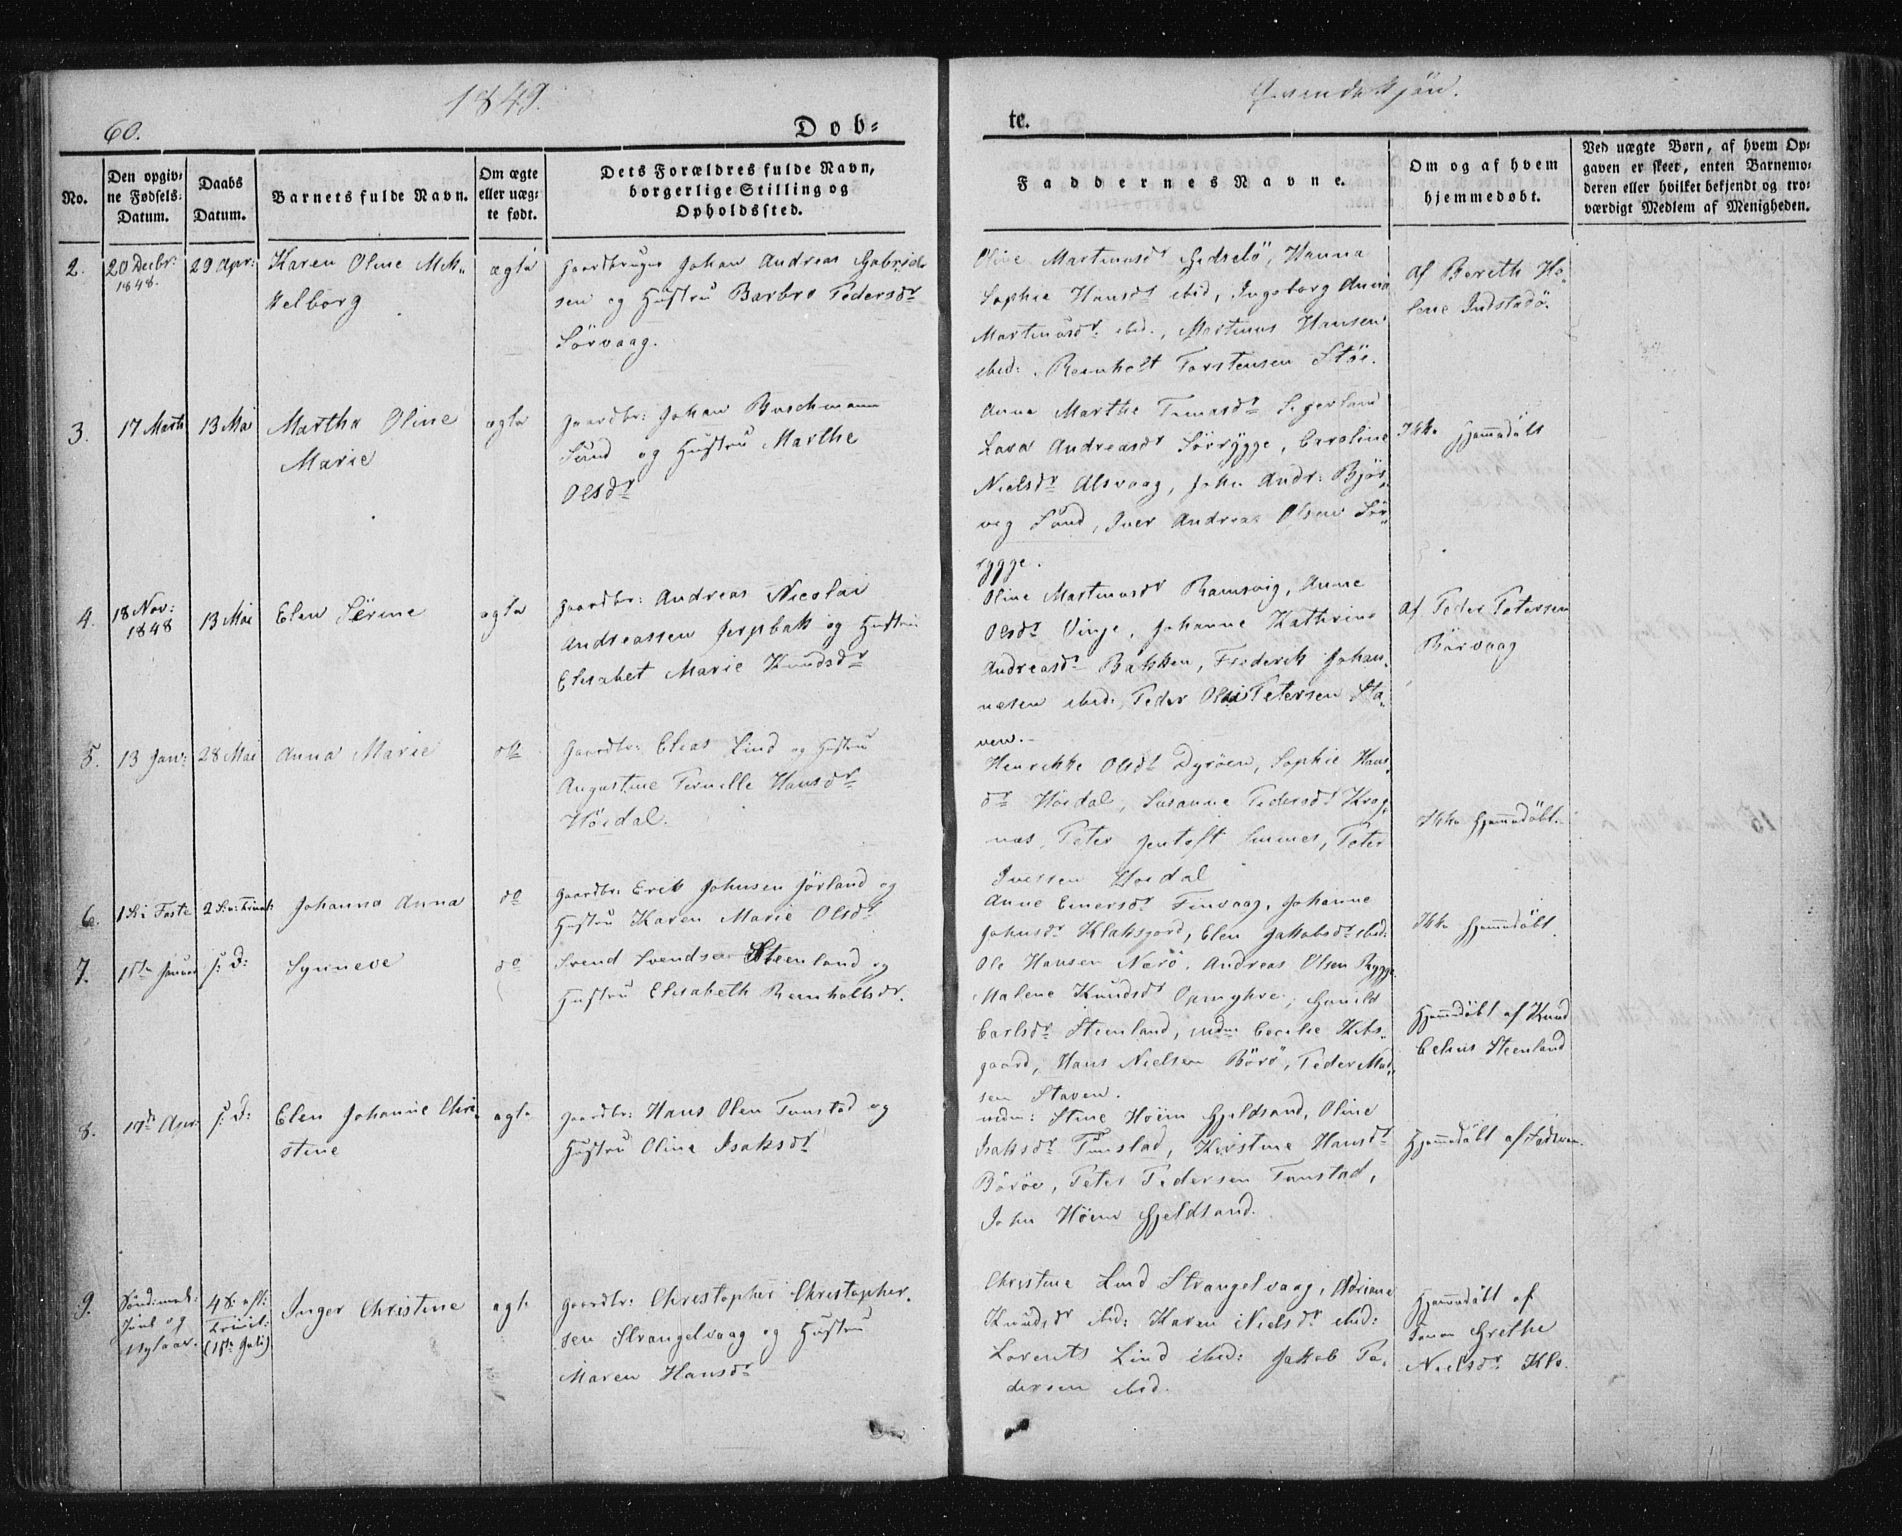 60.
1849.
Qvindeskjön.
Dob=
te.
No.
Den opgiv=
ne Fødsels=
Datum.
Daabs
Datum.
Barnets fulde Navn.
Om ægte
eller uæg=
te født.
Dets Forældres fulde Navn,
borgerlige Stilling og
Opholdssted.
Faddernes Navne.
Om og af hvem
hjemmedøbt.
Ved uægte Børn, af hvem Op=
gaven er skeet, enten Barnemo=
deren eller hvilket bekjendt og tro=
værdigt Medlem af Menigheden.
2.
20 Decbr:
1848.
29 Apr:
Karen Oline Mek
kelborg
ægte
Gaardbruger Johan Andreas Gabriel
sen og Hustru Barbro Pedersdr
Sörvaag.
Oline Martinusdr Gidselö, Hanna
Sophie Hansdr ibid, Ingeborg Anna
Martinusdr ibid., Martinus Hansen
ibid: Reinholt Torstensen Stöe.
Af Bereth He
lene Indstadö.
3.
17 Marts
13 Mai
Martha Oline
Marie
ægte
Gaardbr: Johan Buschmann
Sund og Hustru Marthe
Olsdr
Anna Marthe Tomasdr
Lava Andreasdr Sörrygge, Caroline
Nielsdr Alsvaag, John Andr: Björ
vig Sund, Iver Andreas Olsen Sör
rygge.
Ikke Hjemmedöbt
4.
18 Nov:
1848
13 Mai
Elen Serine
ægte
Gaardbr: Andreas Nicolai
Andreassen Jerpbak og Hustru
Elisabet Marie Knudsdr
Oline Martinusdr Ramsvig, Anne
Olsdr Vinje, Johanne Kathrine
Andreasdr Bakken, Frederik Johan
nesen ibid:, Peder Petersen Sta
ven.
Af Peder Petersen
Börvaag
5.
13 Jan:
28 Mai
Anna Marie
do
Gaardbr: Elias Lind og Hustru
Augustine Pernille Hansdr
Höidal.
Henrikke Olsdr Dyröen, Sophie Hans
dr Höidal, Susanne Pedersdr Krog
næs, Peter Jentoft Summes, Peter
Iversen Höidal
Ikke Hjemmedöbt.
6.
1 S: i Faste
2 S. e: Trinit:
Johanna Anna
do
Gaardbr: Erik Johnsen Jörland og
Hustru Karen Marie Olsdr
Anne Einersdr Finvaag, Johanne
Johnsdr Klaksjord, Elen Jakobsdr ibid:
Ole Hansen Nærö, Andreas Olsen Rygge
Ikke Hjemmedöbt.
7.
s: D:
Synneve
do
Svend Svendsen Steenland og
Hustru Elisabeth Reinholtsdr.
Malene Knudsdr Opmyhre,
Carlsdr Steenland, Cecilie Kibs
gaard, Hans Nielsen Börö, Peder Mad
sen Staven.
Hjemmedöbt af Knud
Steenland
8.
17de Apr:
s: D:
Elen Johanne Chri
stine
ægte
Gaardbr: Hans Olen Tunstad og
Hustru Oline Isaksdr
Stine Höem Gjeldsand, Oline
Isaksdr Tunstad, Kirstine Hansdr
Böröe, Peter Pedersen Tunstad,
John Höem Gjeldsand.
Hjemmedöbt af Faderen.
9.
48: eft:
Trinit:
(1ste Juli)
Inger Christine
ægte
Gaardbr: Christopher Christopher
sen Strangelvaag og Hustru
Maren Hansdr
Christine Lind Strangelvaag, Adriana
Knudsdr ibid: Karen Nielsdr ibid:
Lorents Lind ibid: Jakob Pe
dersen ibid.
Hjemmedöbt af
Grethe
Nielsdr Klo.